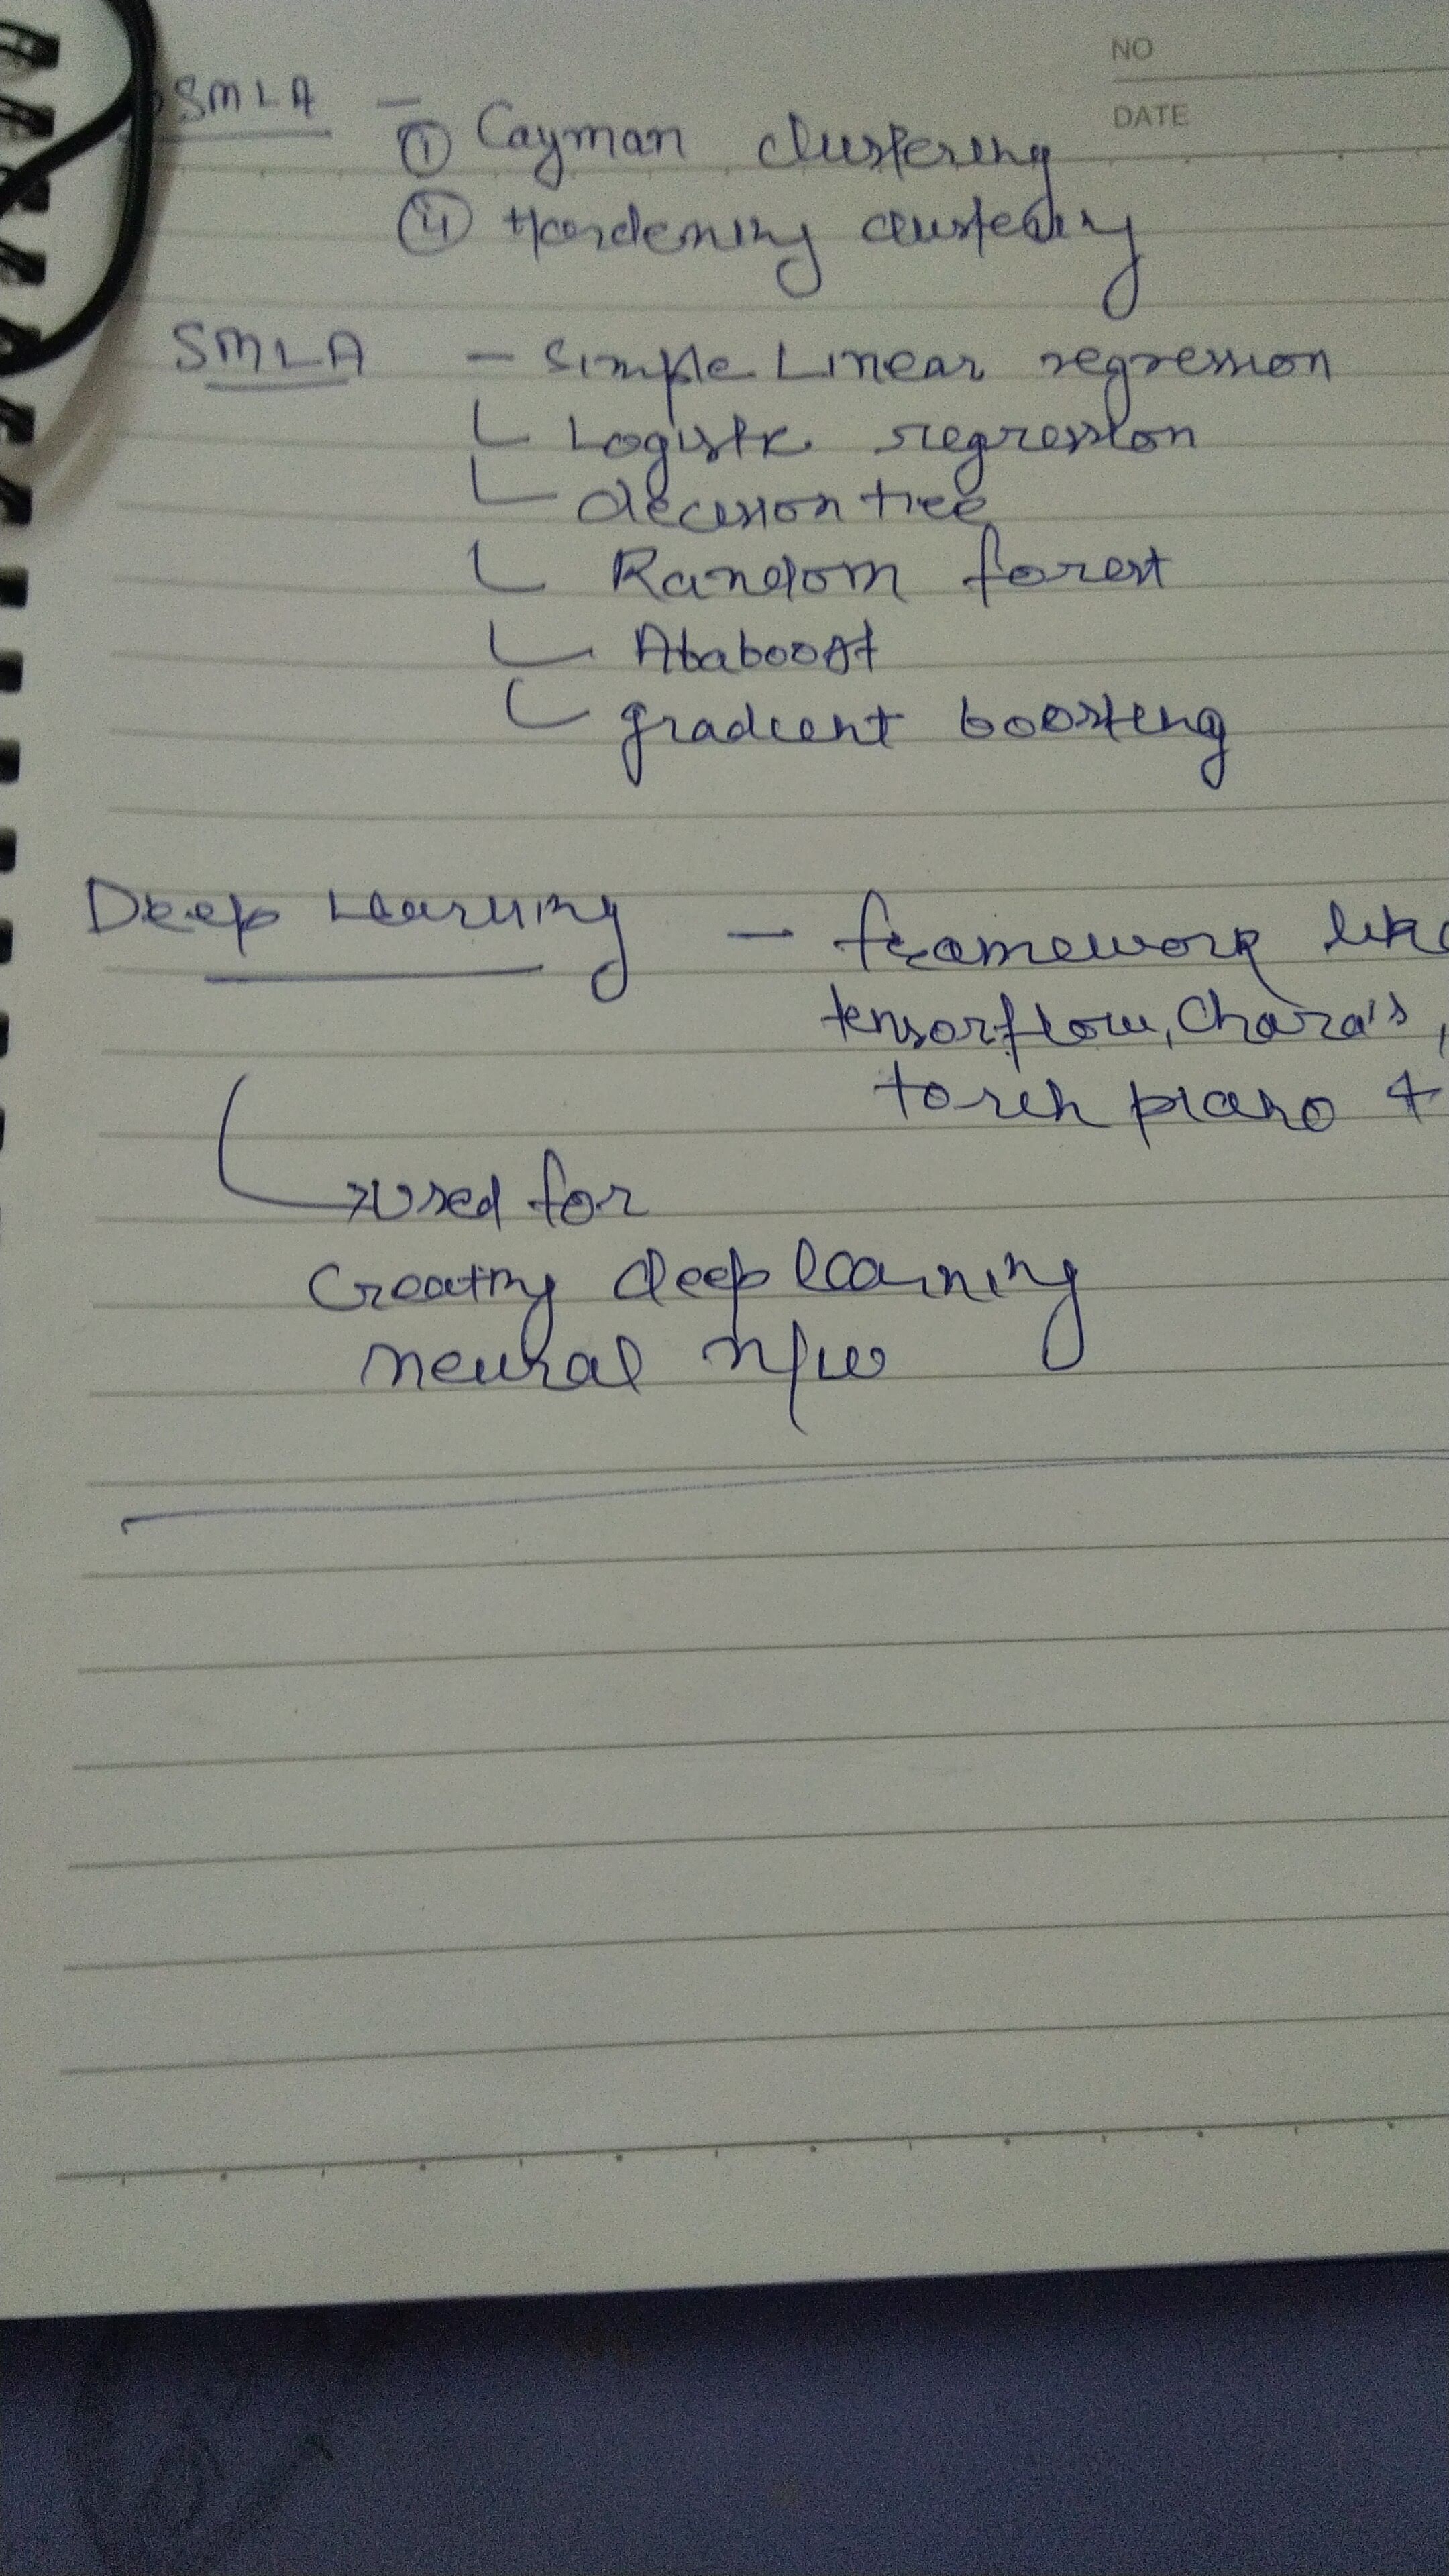 NO
DATE
SMLA -
① Cayman clustering
ⓘⓘ Hardening clustering
SMLA - Simple Linear regression
Logistic regression
decision tree
Random forest
Ababoost
gradient boosting
Deep Learning - framework like
tensorflow, Chara's,
torch piano &
used for
Creating deep learning
neural n/w